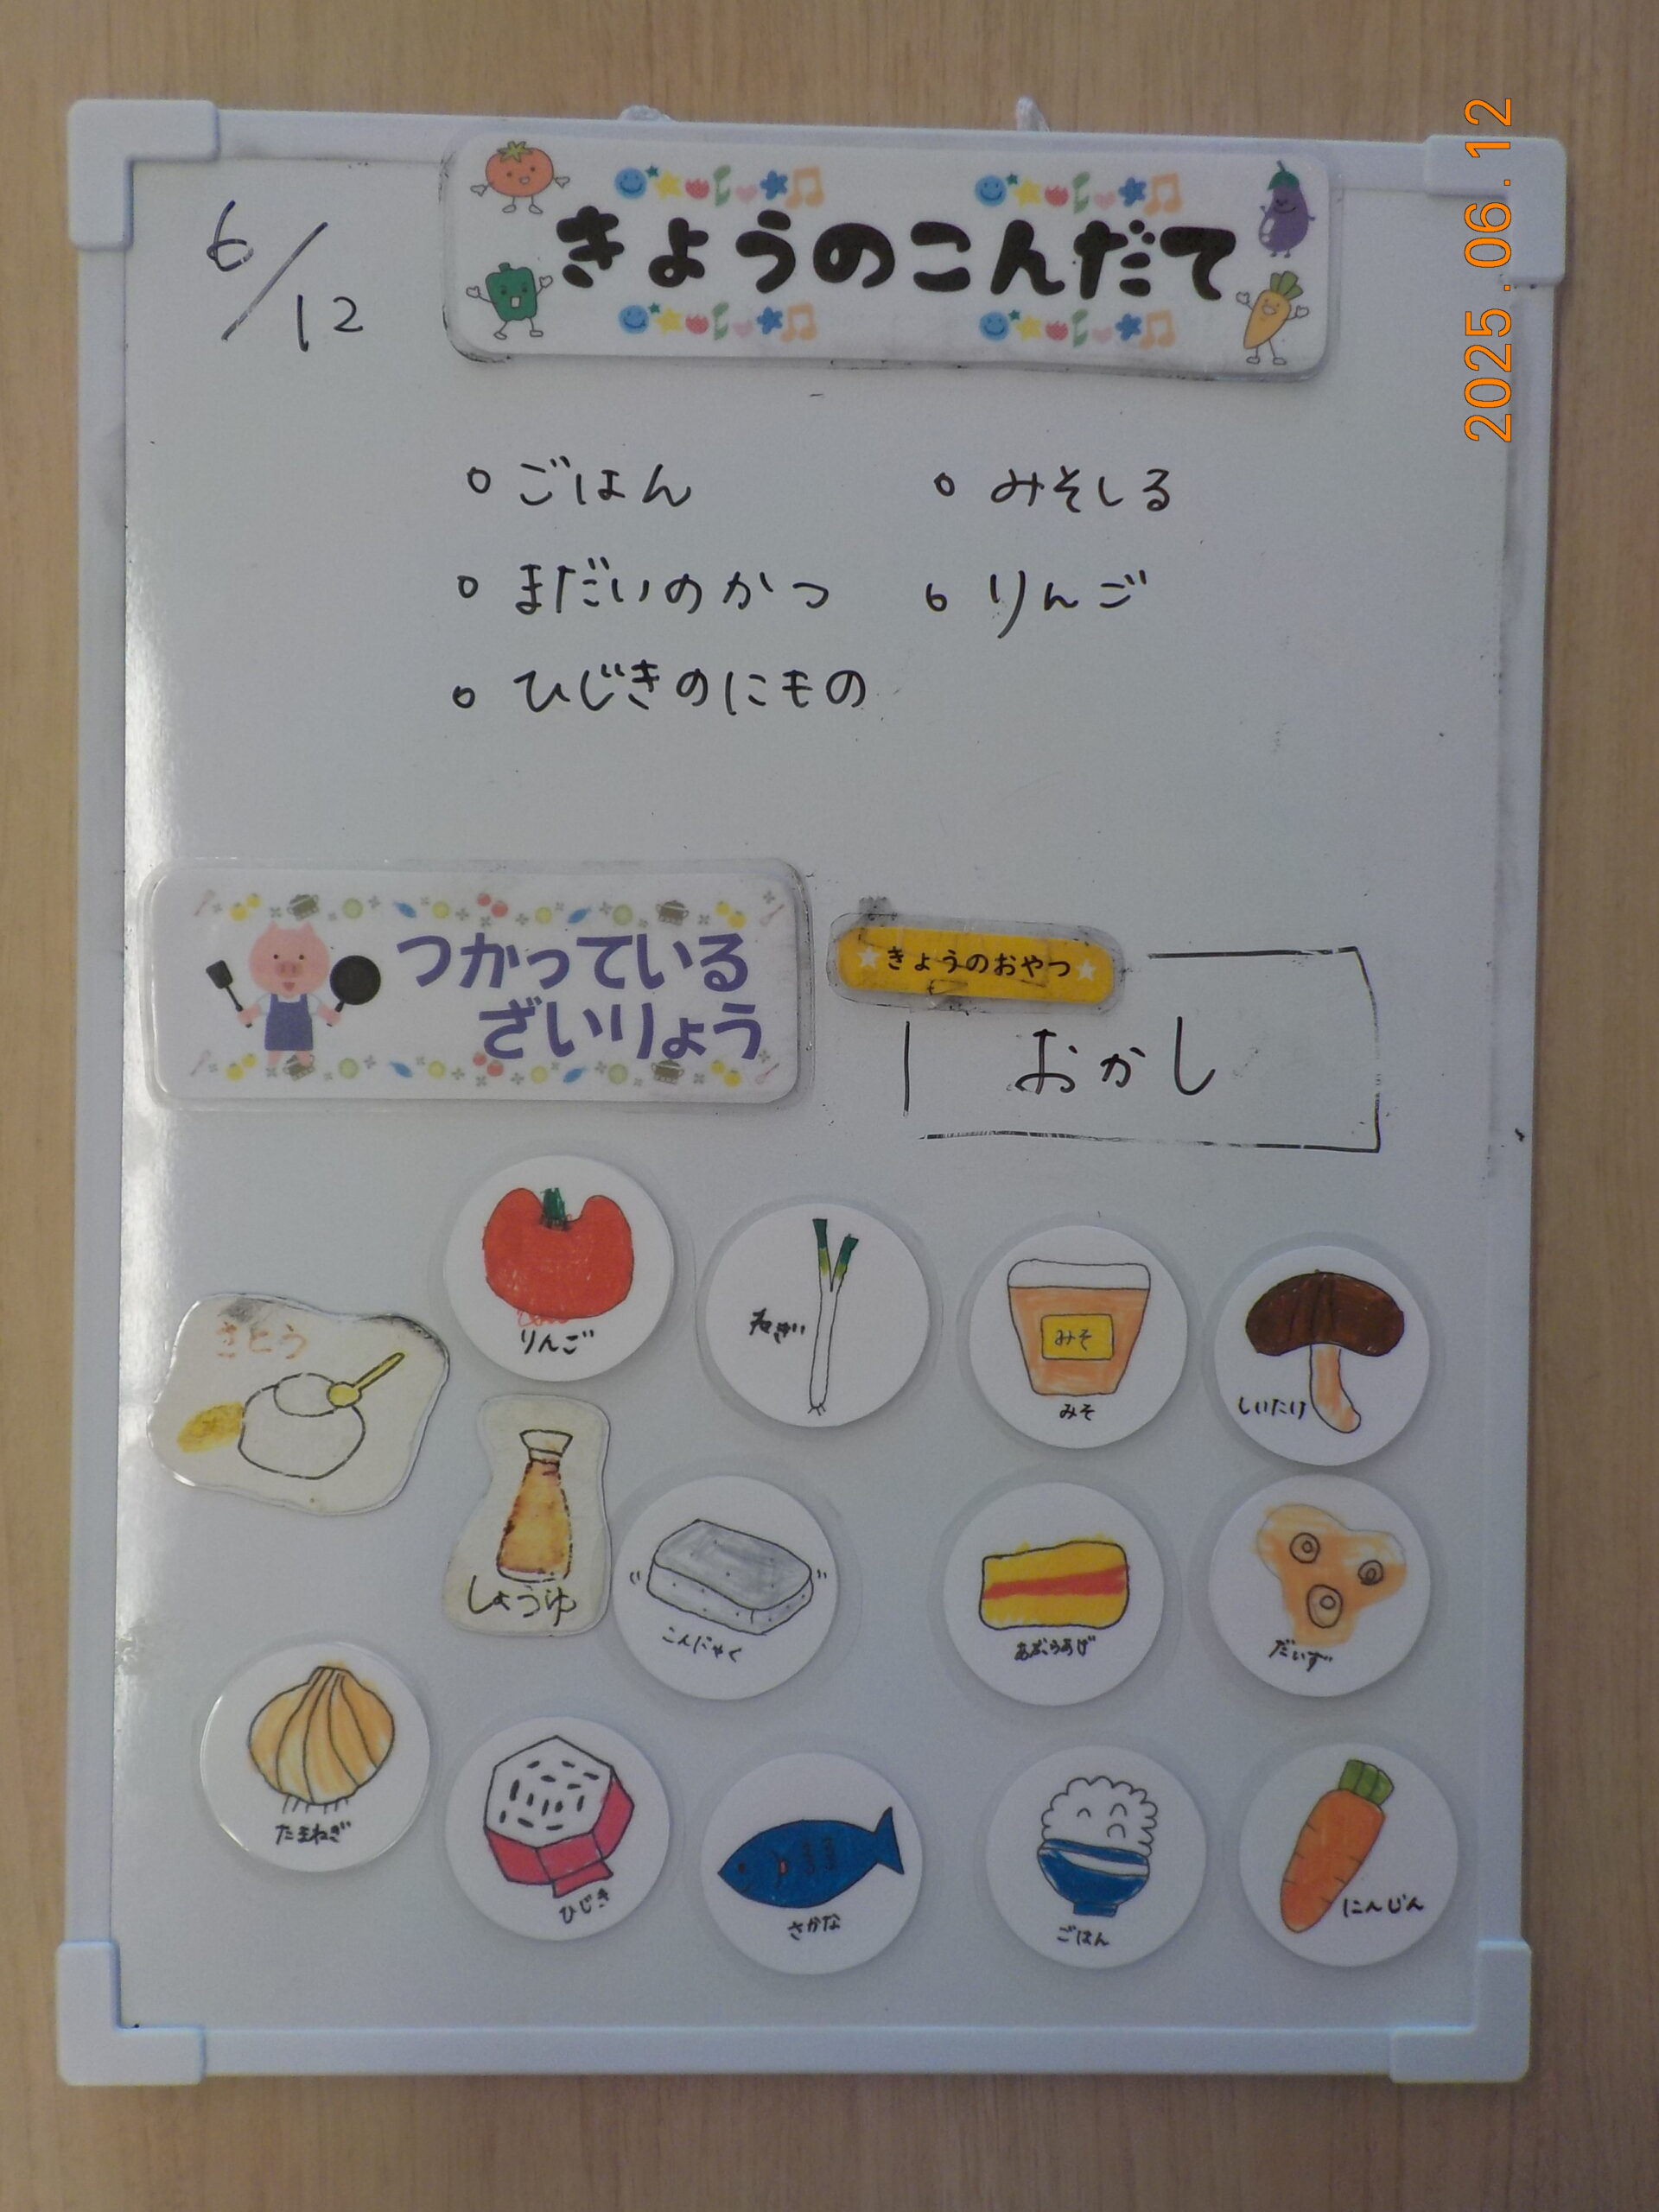 2025.06.12
6/12
きょうのこんだて
○ ごはん
○ まだいのかつ
○ ひじきのにもの
○ みそしる
○ りんご
つかっている
ざいりょう
★きょうのおやつ★
おかし
さとう
りんご
ねぎ
みそ
みそ
しいたけ
しょうゆ
こんにゃく
あぶらあげ
だいず
たまねぎ
ひじき
さかな
ごはん
にんじん